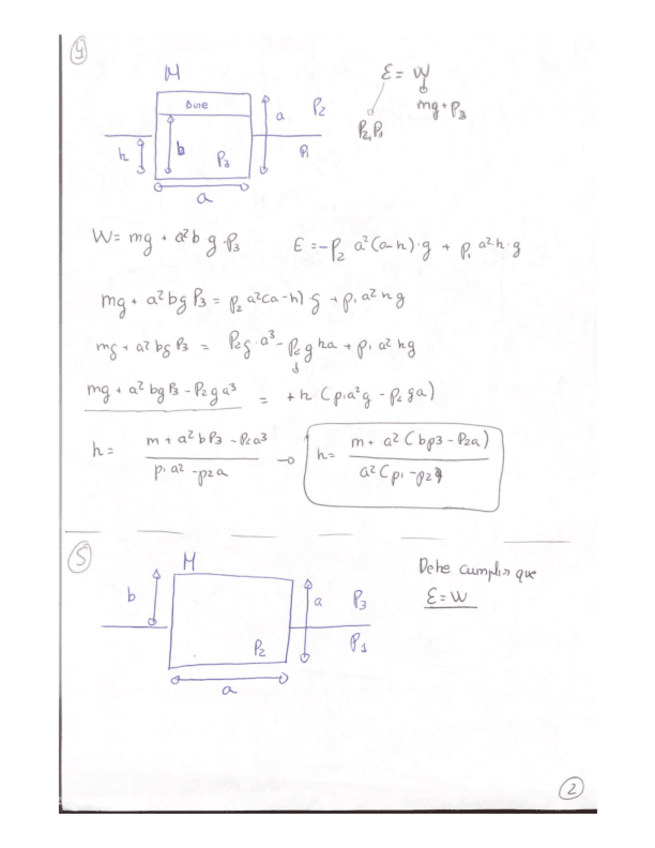 4
M
Base
a P2
h b P3 P1
a
E = W
mg + P3
P2, P1
W = mg + a²b g · P3 E = -P2 a²(a-h)·g + P1 a²h·g
mg + a²bg P3 = P2 a²(a-h) g + P1 a²hg
mg + a²bg P3 = P2g·a³ - P2 g ha + P1 a²hg
mg + a²bg P3 - P2 g a³ = + h (P1a²g - P2 ga)
h = m + a²bP3 - P2a³ / P1 a² - P2a → h = m + a²(bP3 - P2a) / a²(P1 - P2)
5
M
b a P3
P2 P1
a
Debe cumplir que
E = W
2